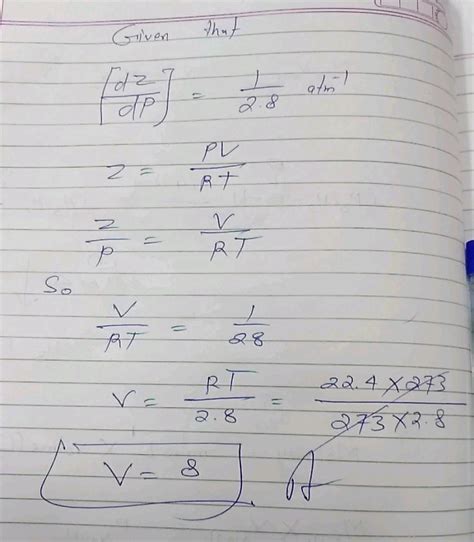 Given that
[dz/dP] = 1/2.8 atm⁻¹
z = PV/RT
z/P = V/RT
So
V/RT = 1/28
V = RT/2.8 = 22.4 × 273/273 × 2.8
V = 8